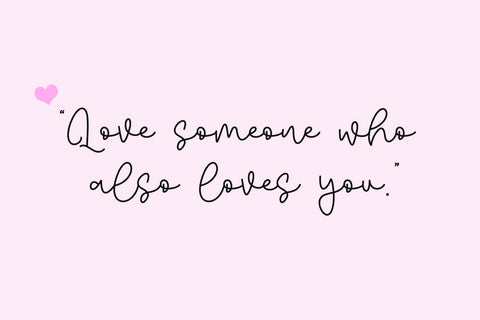 “Love someone who
also loves you.”